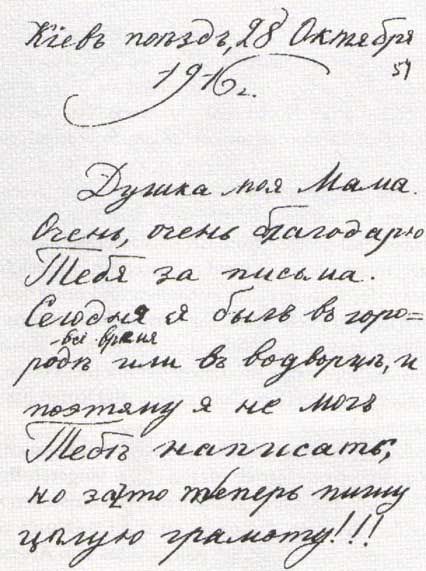 Кіевъ поѣздъ, 28 Октября
1916 г.
51
Душка моя Мама.
Очень, очень благодарю
Тебя за письма.
Сегодня я былъ въ горо=
все время
родѣ или въ водворцѣ, и
поэтяму я не могъ
Тебѣ написать,
но зато теперь пишу
цѣлую грамоту!!!